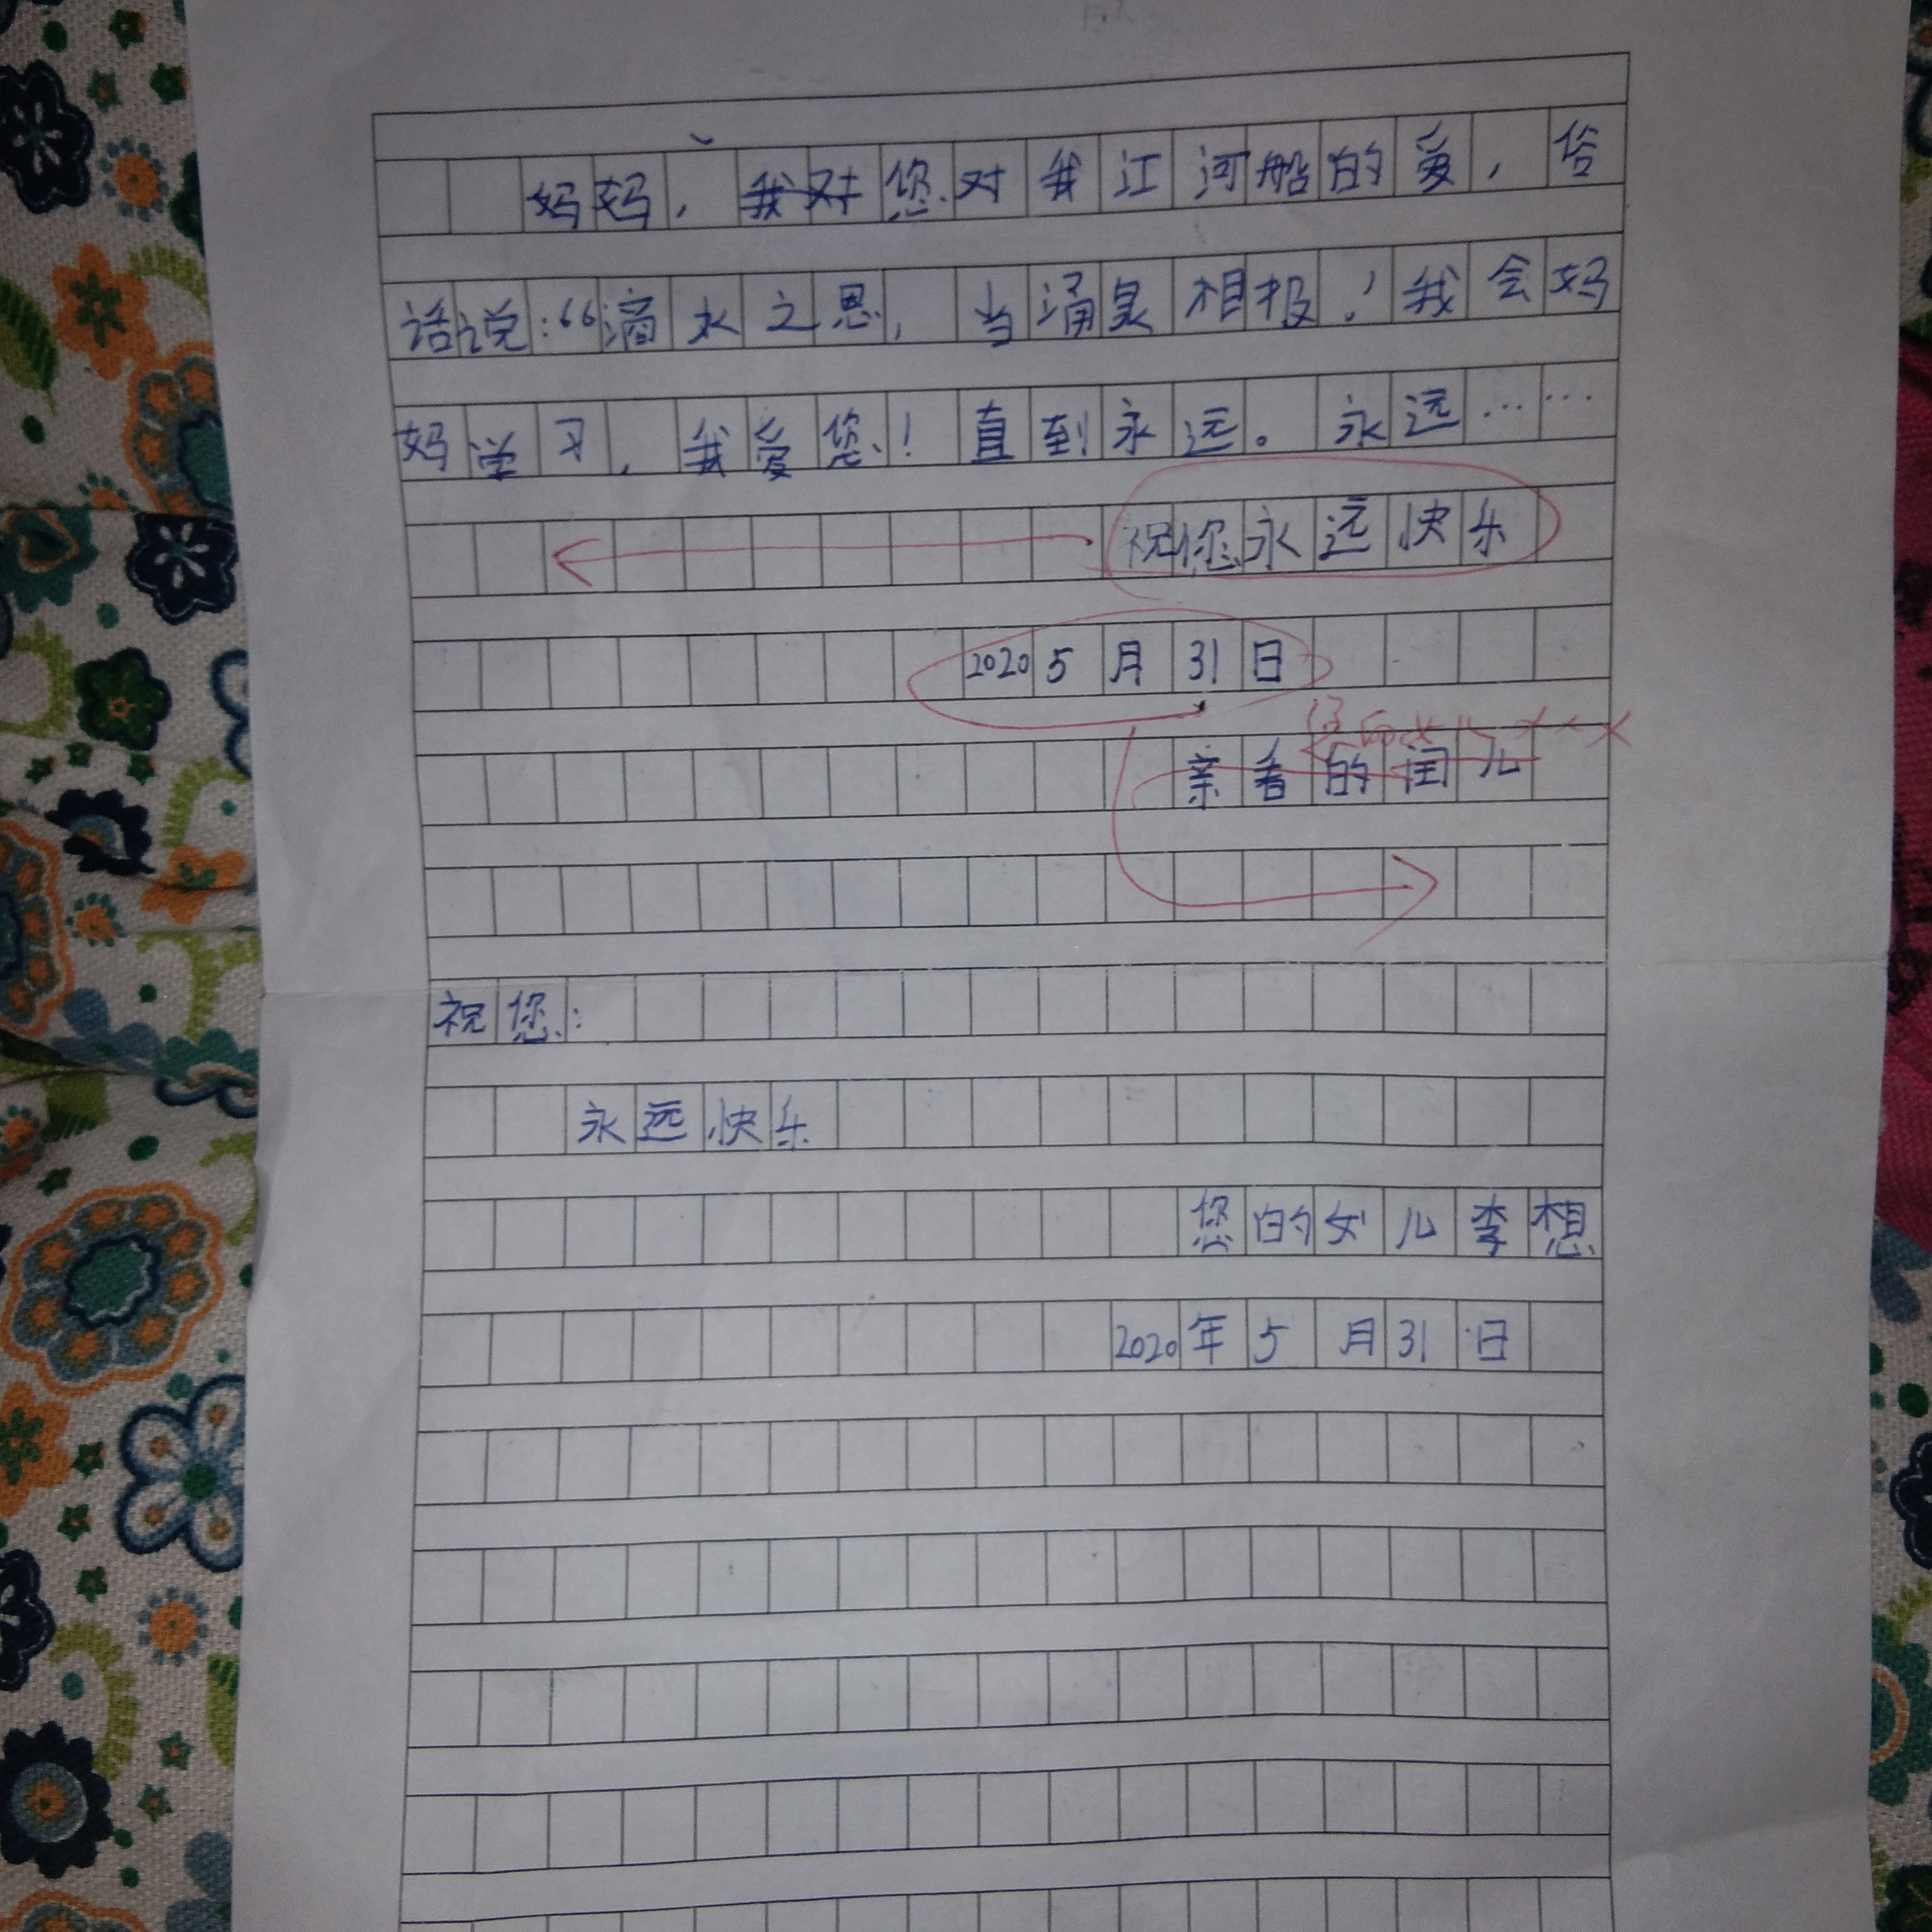 妈妈，我对您对我江河船的爱，俗
话说：“滴水之恩，当涌泉相报！我会妈
妈学习，我爱您！直到永远。永远……
祝您永远快乐
2020 5月31日
您的女儿×××
亲看的闰儿
祝您：
永远快乐
您的女儿李想
2020年5月31日